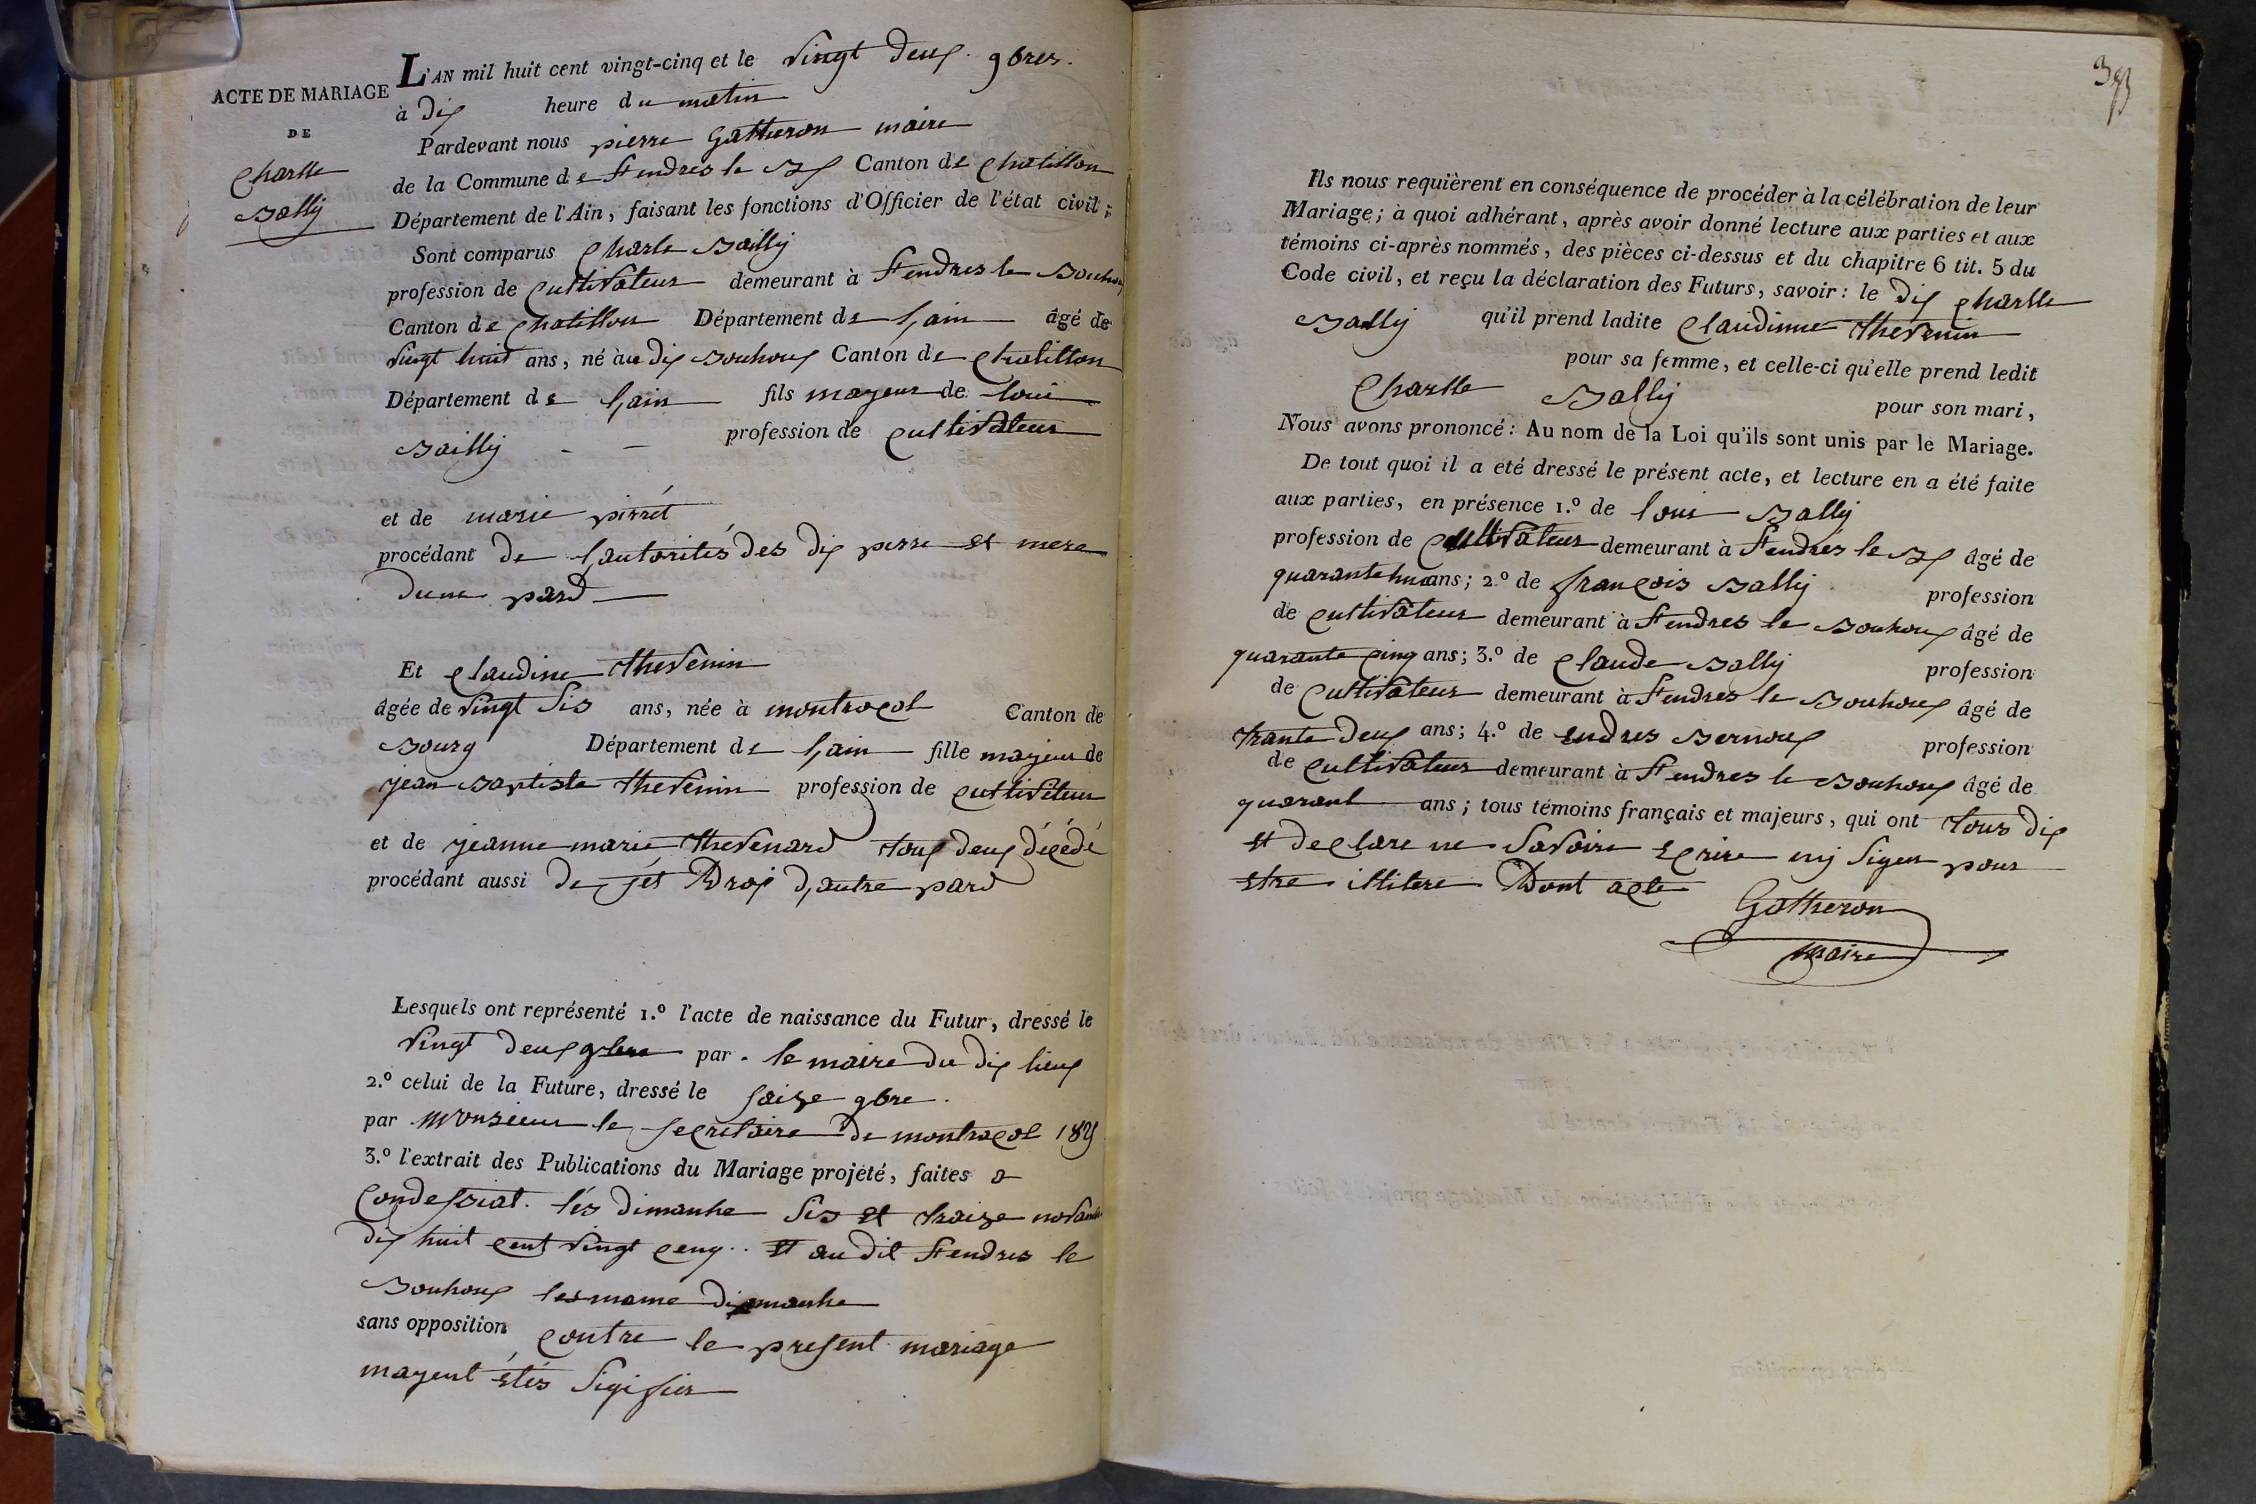 L'AN mil huit cent vingt-cinq et le vingt deux 9bres.
ACTE DE MARIAGE
à dix heure du matin
DE
Pardevant nous pierre Gatheron maire
Charlle
de la Commune de St endres le Bx Canton de Chatillon
Bally
Département de l'Ain, faisant les fonctions d'Officier de l'état civil;
Sont comparus Charle Bailly
profession de Cultivateur demeurant à St endres le Bouhoux
Canton de Chatillon Département de l,ain âgé de
vingt huit ans, né à au dix Bouhoux Canton de Chatillon
Département de l,ain fils mageur de loui
Bailly - - profession de Cultivateur
et de marie pirrét
procédant de l,autorités des dix perre et mere
dune pard
Et Claudine thevenin
âgée de vingt sis ans, née à montracol Canton de
Bourg Département de l,ain fille majeur de
jean Baptiste thevenin profession de Cultivateur
et de jeanne marie thevenard tous deux décédé
procédant aussi de sés Droi d,autre pard
Lesquels ont représenté 1.º l'acte de naissance du Futur, dressé le
vingt deux 9bre par le maire du dix lieux
2.º celui de la Future, dressé le saize 9bre.
par Monsieur le secretaire de montracol
3.º l'extrait des Publications du Mariage projeté, faites a
Condessiat. lés dimanhe sis et traize novambre
dix huit cent vingt ceng.. et au dit St endres le
Bouhoux les mame dimanhe
sans opposition contre le present mariage
mayent étés sigifier
393
Ils nous requièrent en conséquence de procéder à la célébration de leur
Mariage; à quoi adhérant, après avoir donné lecture aux parties et aux
témoins ci-après nommés, des pièces ci-dessus et du chapitre 6 tit. 5 du
Code civil, et reçu la déclaration des Futurs, savoir: le dix Charlle
Bally qu'il prend ladite Claudinne thevenin
pour sa femme, et celle-ci qu'elle prend ledit
Charlle Bally pour son mari,
Nous avons prononcé: Au nom de la Loi qu'ils sont unis par le Mariage.
De tout quoi il a été dressé le présent acte, et lecture en a été faite
aux parties, en présence 1.º de loui Bally
profession de Cultivateur demeurant à St endrés le Bx âgé de
quarante hui ans; 2.º de françois Bally profession
de Cultivateur demeurant à St endres le Bouhoux âgé de
quarante cinq ans; 3.º de Claude Bally profession
de Cultivateur demeurant à St endres le Bouhoux âgé de
trante deux ans; 4.º de endres Bernoux profession
de Cultivateur demeurant à St endres le Bouhoux âgé de
quarant ans; tous témoins français et majeurs, qui ont tous dix
et declare ne savoire Ecrire nij siger pour
estre illitere Dont acte
Gatheron
maire